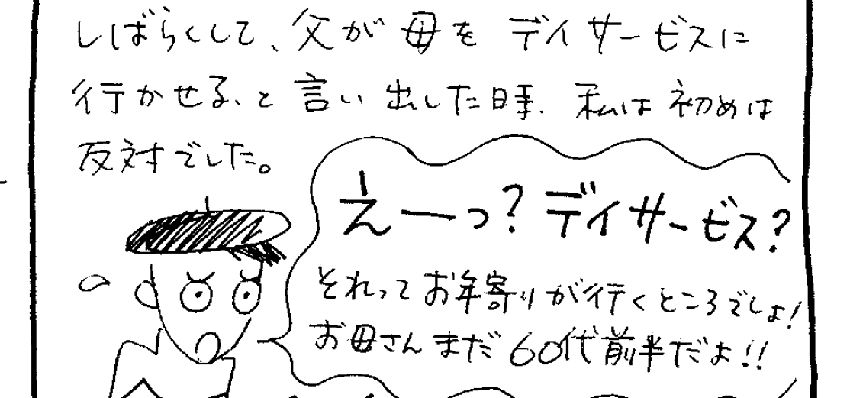 しばらくして、父が母を デイサービスに
行かせる、と言い出した時、私は初めは
反対でした。
えーっ？デイサービス？
それってお年寄りが行くところでしょ！
お母さんまだ60代前半だよ！！